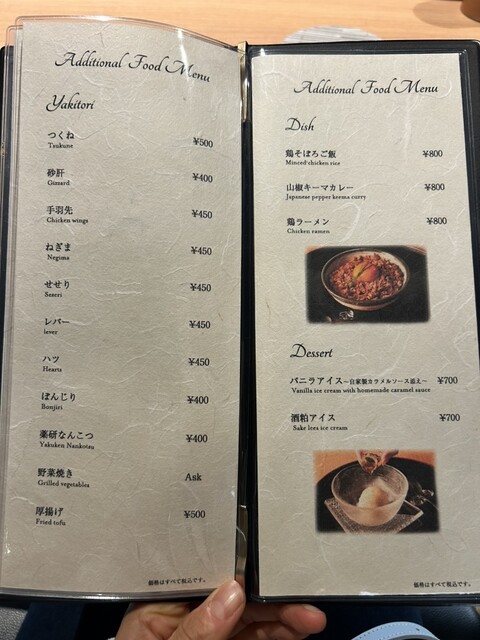 Additional Food Menu
Yakitori
つくね ¥500
Tsukune
砂肝 ¥400
Gizzard
手羽先 ¥450
Chicken wings
ねぎま ¥450
Negima
せせり ¥450
Seseri
レバー ¥450
lever
ハツ ¥450
Hearts
ぼんじり ¥400
Bonjiri
薬研なんこつ ¥400
Yakuken Nankotsu
野菜焼き Ask
Grilled vegetables
厚揚げ ¥500
Fried tofu
価格はすべて税込です。
Additional Food Menu
Dish
鶏そぼろご飯 ¥800
Minced chicken rice
山椒キーマカレー ¥800
Japanese pepper keema curry
鶏ラーメン ¥800
Chicken ramen
Dessert
バニラアイス～自家製カラメルソース添え～ ¥700
Vanilla ice cream with homemade caramel sauce
酒粕アイス ¥700
Sake lees ice cream
価格はすべて税込です。